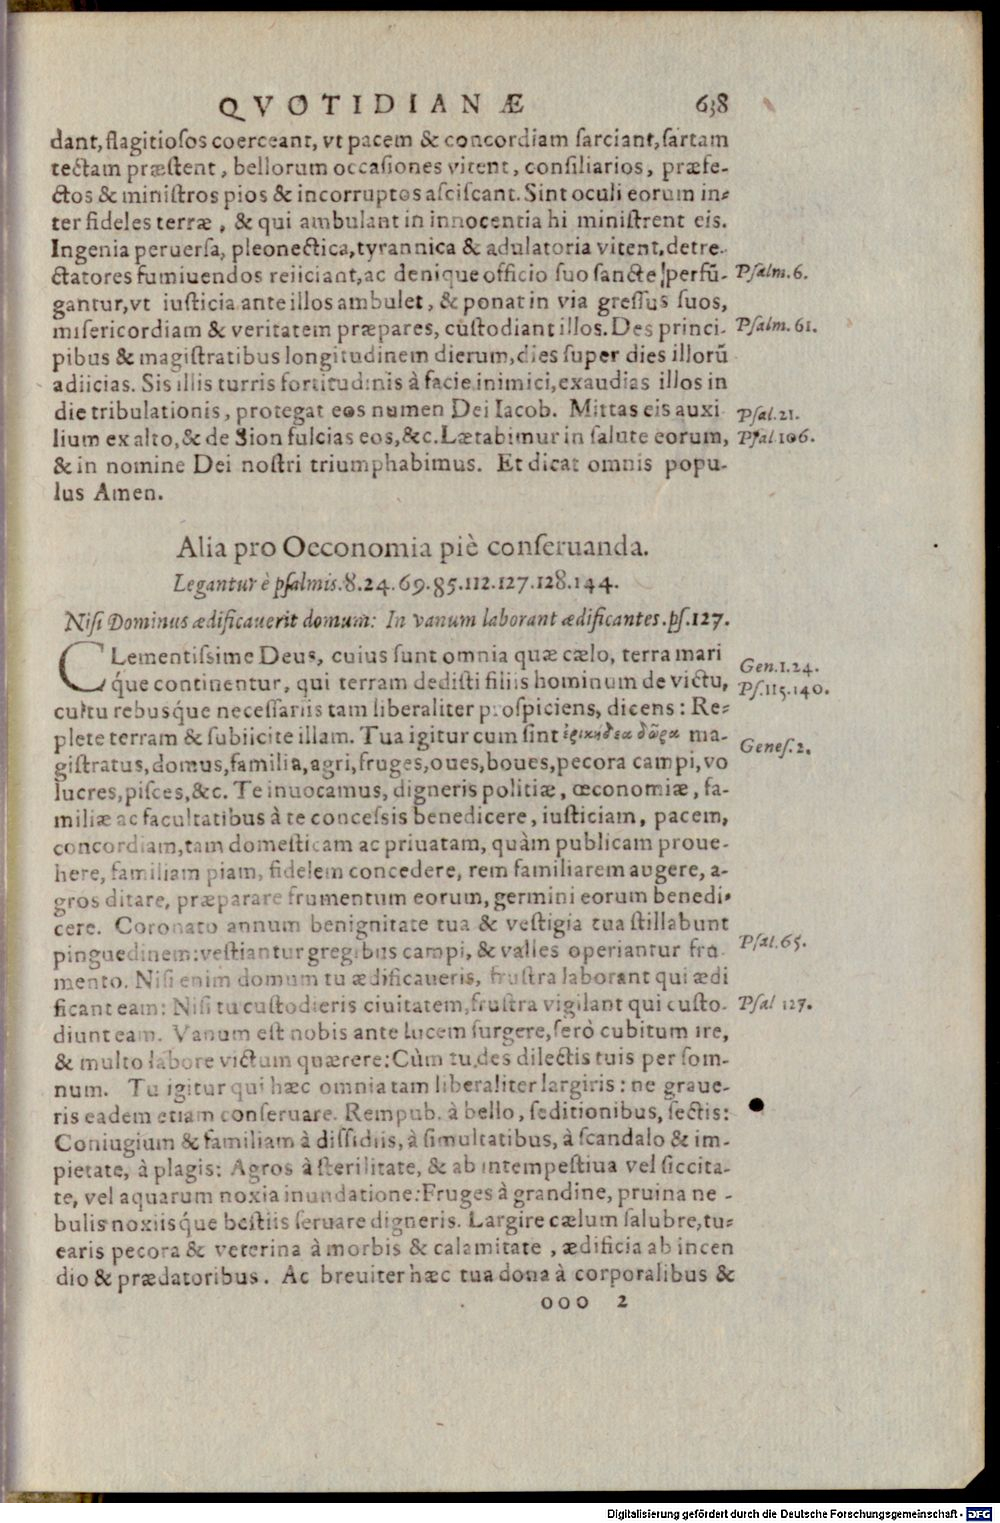 QVOTIDIANÆ 638
dant, flagitiosos coerceant, vt pacem & concordiam sarciant, sartam
tectam præstent, bellorum occasiones vitent, consiliarios, præfe-
ctos & ministros pios & incorruptos asciscant. Sint oculi eorum in-
ter fideles terræ, & qui ambulant in innocentia hi ministrent eis.
Ingenia peruersa, pleonectica, tyrannica & adulatoria vitent, detre-
ctatores fumiuendos reiiciant, ac denique officio suo sancte perfũ- Psalm. 6.
gantur, vt iusticia ante illos ambulet, & ponat in via gressus suos,
misericordiam & veritatem præpares, custodiant illos. Des princi- Psalm. 61.
pibus & magistratibus longitudinem dierum, dies super dies illorũ
adiicias. Sis illis turris fortitudinis à facie inimici, exaudias illos in
die tribulationis, protegat eos numen Dei Iacob. Mittas eis auxi Psal. 21.
lium ex alto, & de Sion fulcias eos, &c. Lætabimur in salute eorum, Psal 106.
& in nomine Dei nostri triumphabimus. Et dicat omnis popu-
lus Amen.
Alia pro Oeconomia piè conseruanda.
Legantur è psalmis. 8. 24. 69. 85. 112. 127. 128. 144.
Nisi Dominus ædificauerit domum: In vanum laborant ædificantes. ps. 127.
CLementissime Deus, cuius sunt omnia quæ cælo, terra mari Gen. 1. 24.
q́ue continentur, qui terram dedisti filiis hominum de victu, Ps. 115. 140.
cultu rebusq́ue necessariis tam liberaliter prospiciens, dicens: Re-
plete terram & subiicite illam. Tua igitur cum sint δῶρα ma- Genes. 2.
gistratus, domus, familia, agri, fruges, oues, boues, pecora campi, vo
lucres, pisces, &c. Te inuocamus, digneris politiæ, œconomiæ, fa-
miliæ ac facultatibus à te concessis benedicere, iusticiam, pacem,
concordiam, tam domesticam ac priuatam, quàm publicam proue-
here, familiam piam, fidelem concedere, rem familiarem augere, a-
gros ditare, præparare frumentum eorum, germini eorum benedi-
cere. Coronato annum benignitate tua & vestigia tua stillabunt
pinguedinem: vestiantur gregibus campi, & valles operiantur fru- Psal. 65.
mento. Nisi enim domum tu ædificaueris, frustra laborant qui ædi
ficant eam: Nisi tu custodieris ciuitatem, frustra vigilant qui custo- Psal 127.
diunt eam. Vanum est nobis ante lucem surgere, serò cubitum ire,
& multo labore victum quærere: Cùm tu des dilectis tuis per som-
num. Tu igitur qui hæc omnia tam liberaliter largiris: ne graue-
ris eadem etiam conseruare. Rempub. à bello, seditionibus, sectis:
Coniugium & familiam à dissidiis, à simultatibus, à scandalo & im-
pietate, à plagis: Agros à sterilitate, & ab intempestiua vel siccita-
te, vel aquarum noxia inundatione: Fruges à grandine, pruina ne-
bulis noxiisq́ue bestiis seruare digneris. Largire cælum salubre, tu-
earis pecora & veterina à morbis & calamitate, ædificia ab incen
dio & prædatoribus. Ac breuiter hæc tua dona à corporalibus &
ooo 2
Digitalisierung gefördert durch die Deutsche Forschungsgemeinschaft - DFG